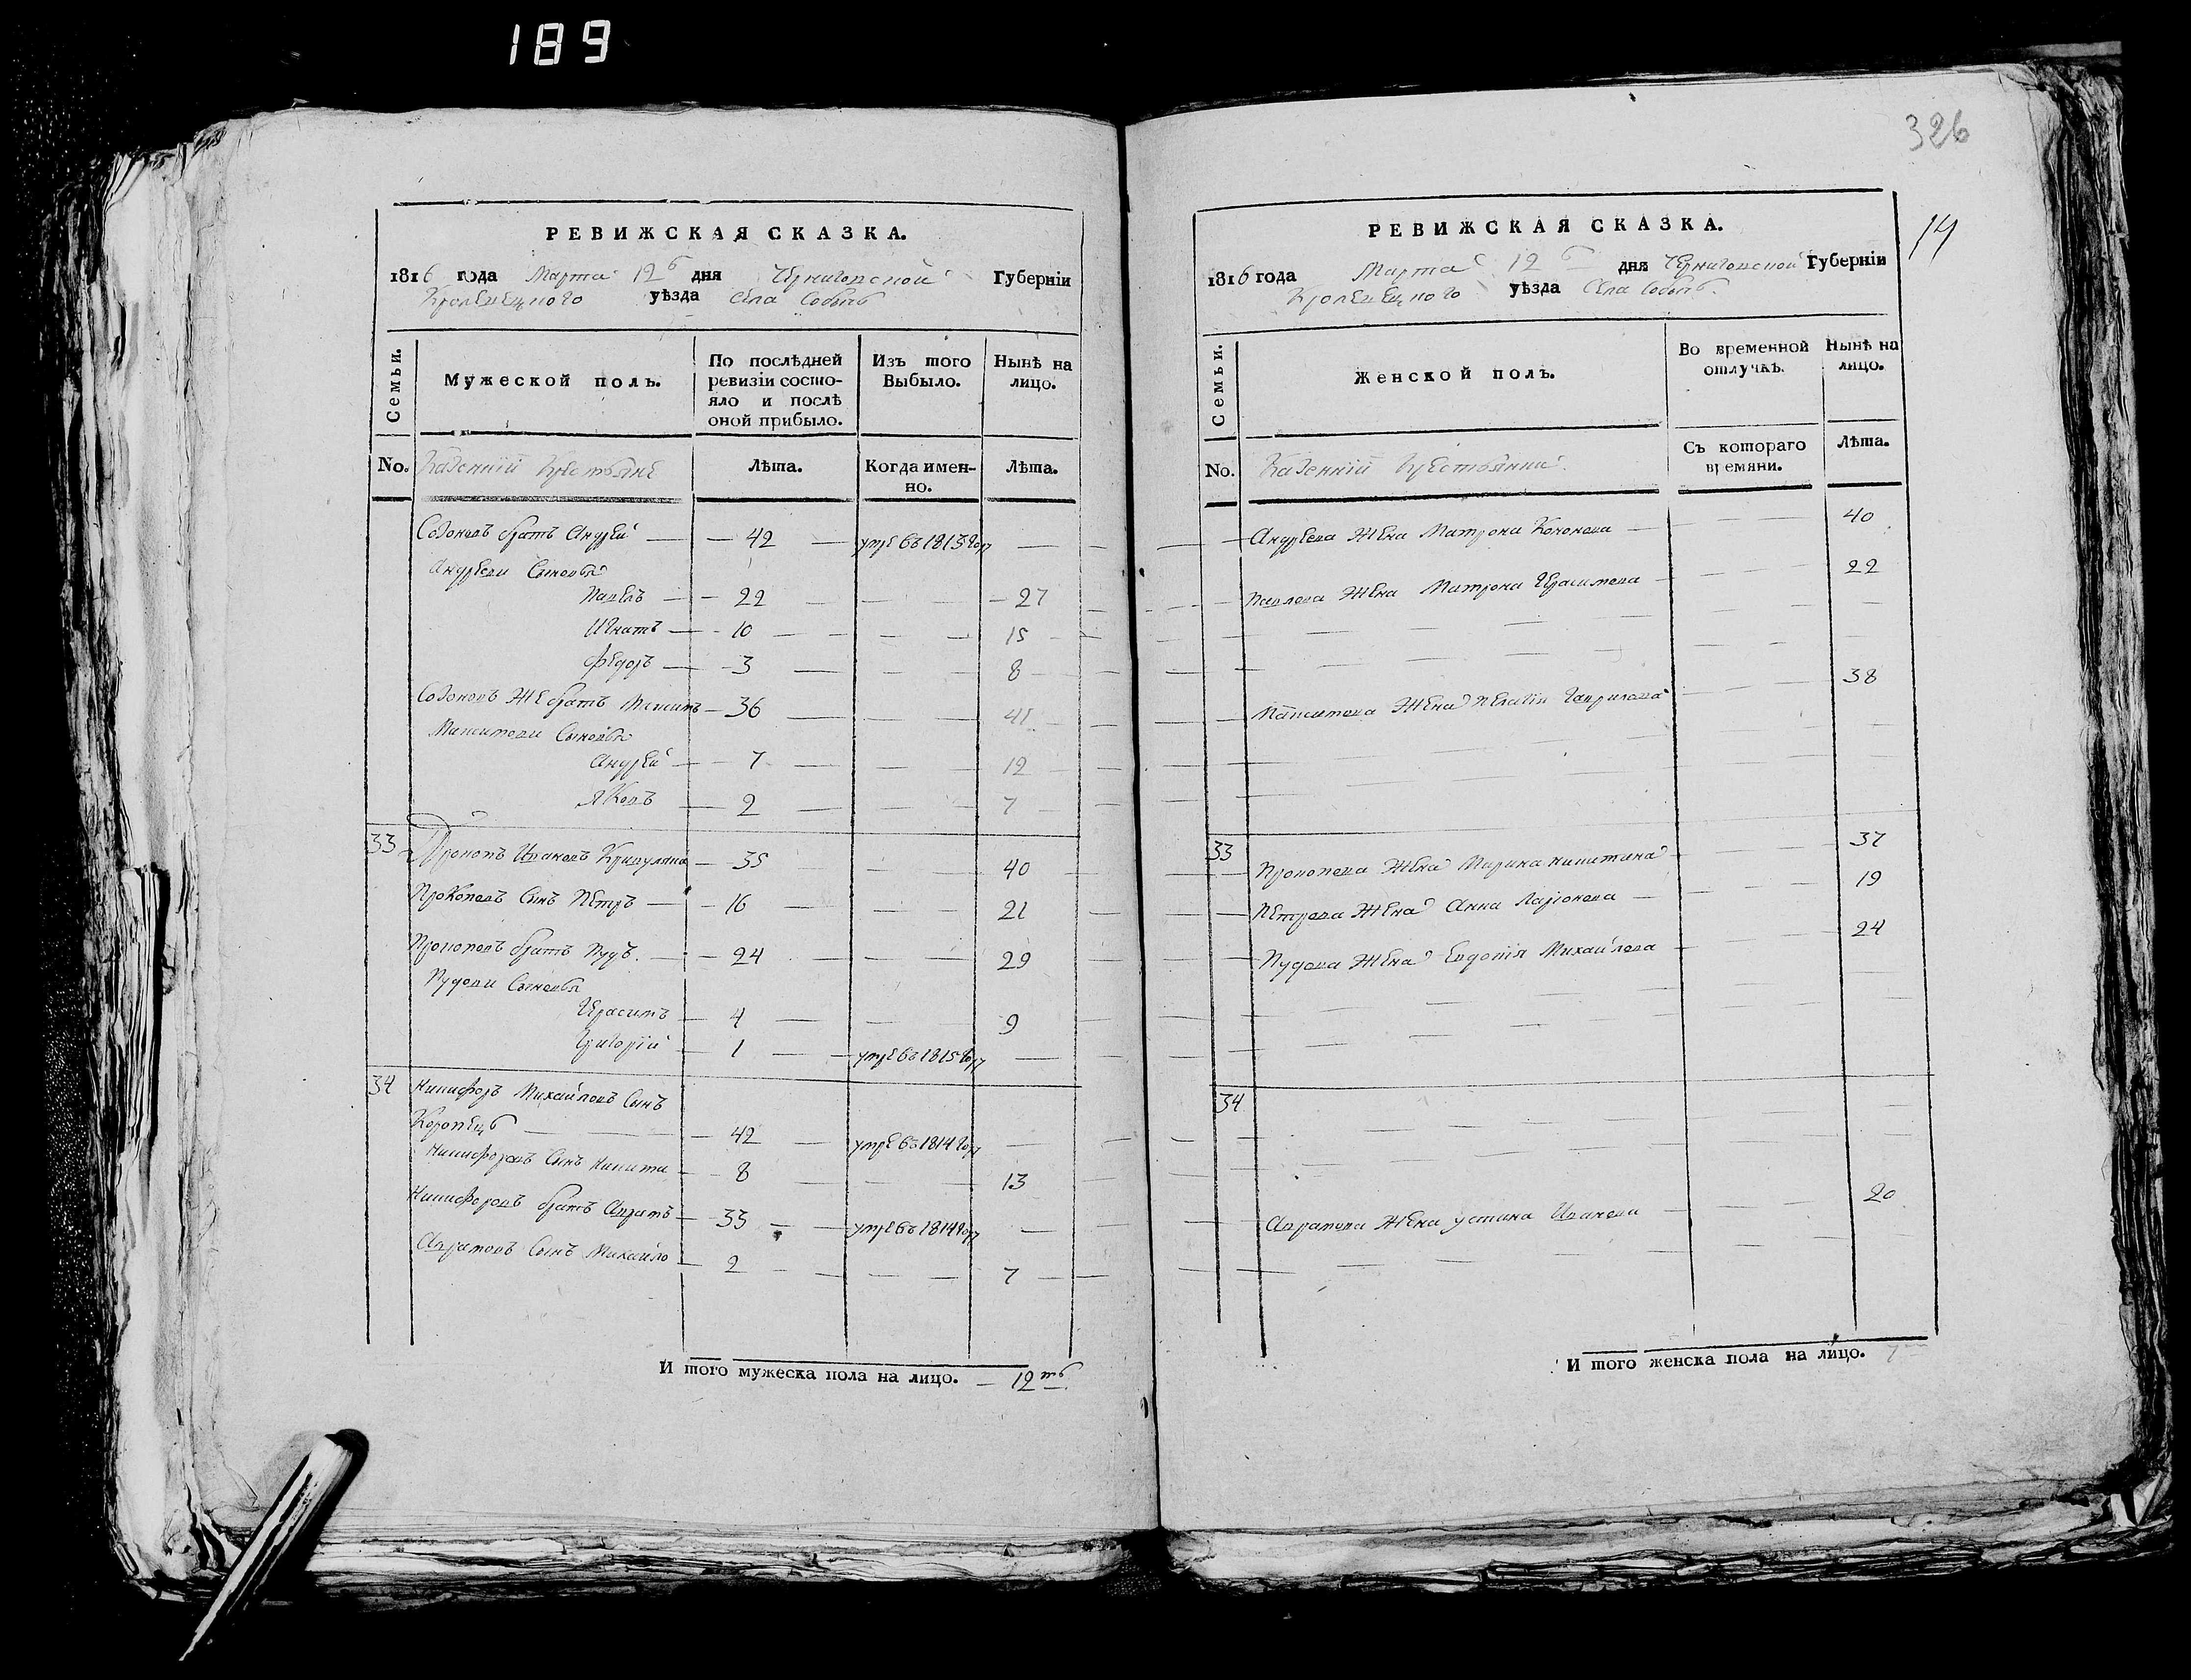 189
326
14
РЕВИЖСКАЯ СКАЗКА.
1816 года Марта 12 дня Черниговской Губерніи
Кролевецкого уѣзда Села Собычь
Семьи.
Мужеской полъ.
По послѣдней ревизіи состояло и послѣ оной прибыло.
Изъ того Выбыло.
Нынѣ на лицо.
No. Казенніи Крестьяне
Лѣта.
Когда именно.
Лѣта.
Созоновъ братъ Андрей — 42 — умре въ 1813 году —
Андреевы Сыновья
Павелъ — 22 — 27
Игнатъ — 10 — 15
Федоръ — 3 — 8
Созоновъ же братъ — 36 — 41
Сыновья
Андрей — 7 — 12
Яковъ — 2 — 7
33 Прокопъ Ивановъ — 35 — 40
Прокоповъ Сынъ Петръ — 16 — 21
Прокоповъ братъ Пудъ. — 24 — 29
Пудовы Сыновья
Герасимъ — 4 — 9
Григорій — 1 — умре въ 1815 году —
34 Никифоръ Михайловъ Сынъ
Коропецъ — 42 — умре въ 1814 году —
Никифоровъ Сынъ Никита — 8 — 13
Никифоровъ братъ Аврамъ — 33 — умре въ 1814 году —
Аврамовъ Сынъ Михайло — 2 — 7
И того мужеска пола на лицо. — 12ть
РЕВИЖСКАЯ СКАЗКА.
1816 года Марта 12 дня Черниговской Губерніи
Кролевецкого уѣзда Села Собычь.
Семьи.
Женской полъ.
Во временной отлучкѣ.
Нынѣ на лицо.
No. Казенніи Крестьянки.
Съ котораго времяни.
Лѣта.
Андреева Жена Матрона Кононова — 40
Павлова Жена Матрона Герасимова — 22
Жена Пелагія Гаврилова — 38
33 Прокопова Жена Марина Никитина — 37
Петрова Жена Анна Ларіонова — 19
Пудова Жена Евдокія Михайлова — 24
34
Аврамова Жена Устина Иванова — 20
И того женска пола на лицо. 7